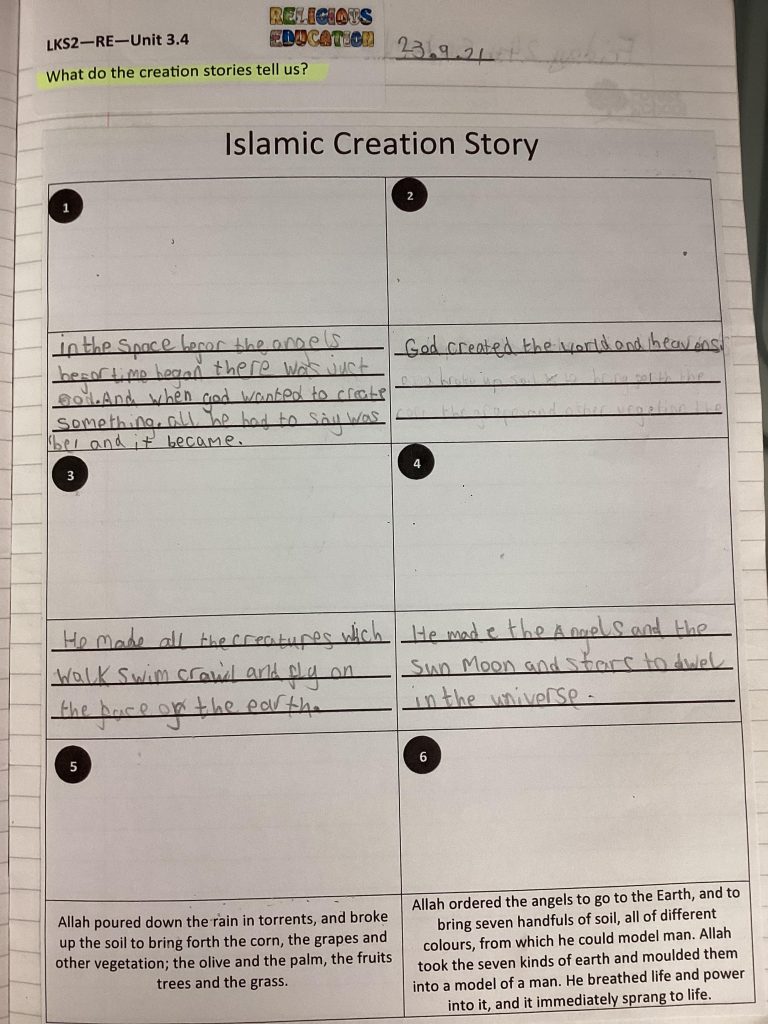 LKS2—RE—Unit 3.4
RELIGIOUS
EDUCATION
23.9.21
What do the creation stories tell us?
Islamic Creation Story
1
in the space befor the angels
befor time began there was just
God. And when god wanted to create
something, all he had to say was
'be' and it became.
2
God created the world and heavens.
3
He made all the creatures wich
walk swim crawl and fly on
the face of the earth.
4
He made the Angels and the
Sun Moon and stars to dwel
in the universe.
5
Allah poured down the rain in torrents, and broke
up the soil to bring forth the corn, the grapes and
other vegetation; the olive and the palm, the fruits
trees and the grass.
6
Allah ordered the angels to go to the Earth, and to
bring seven handfuls of soil, all of different
colours, from which he could model man. Allah
took the seven kinds of earth and moulded them
into a model of a man. He breathed life and power
into it, and it immediately sprang to life.